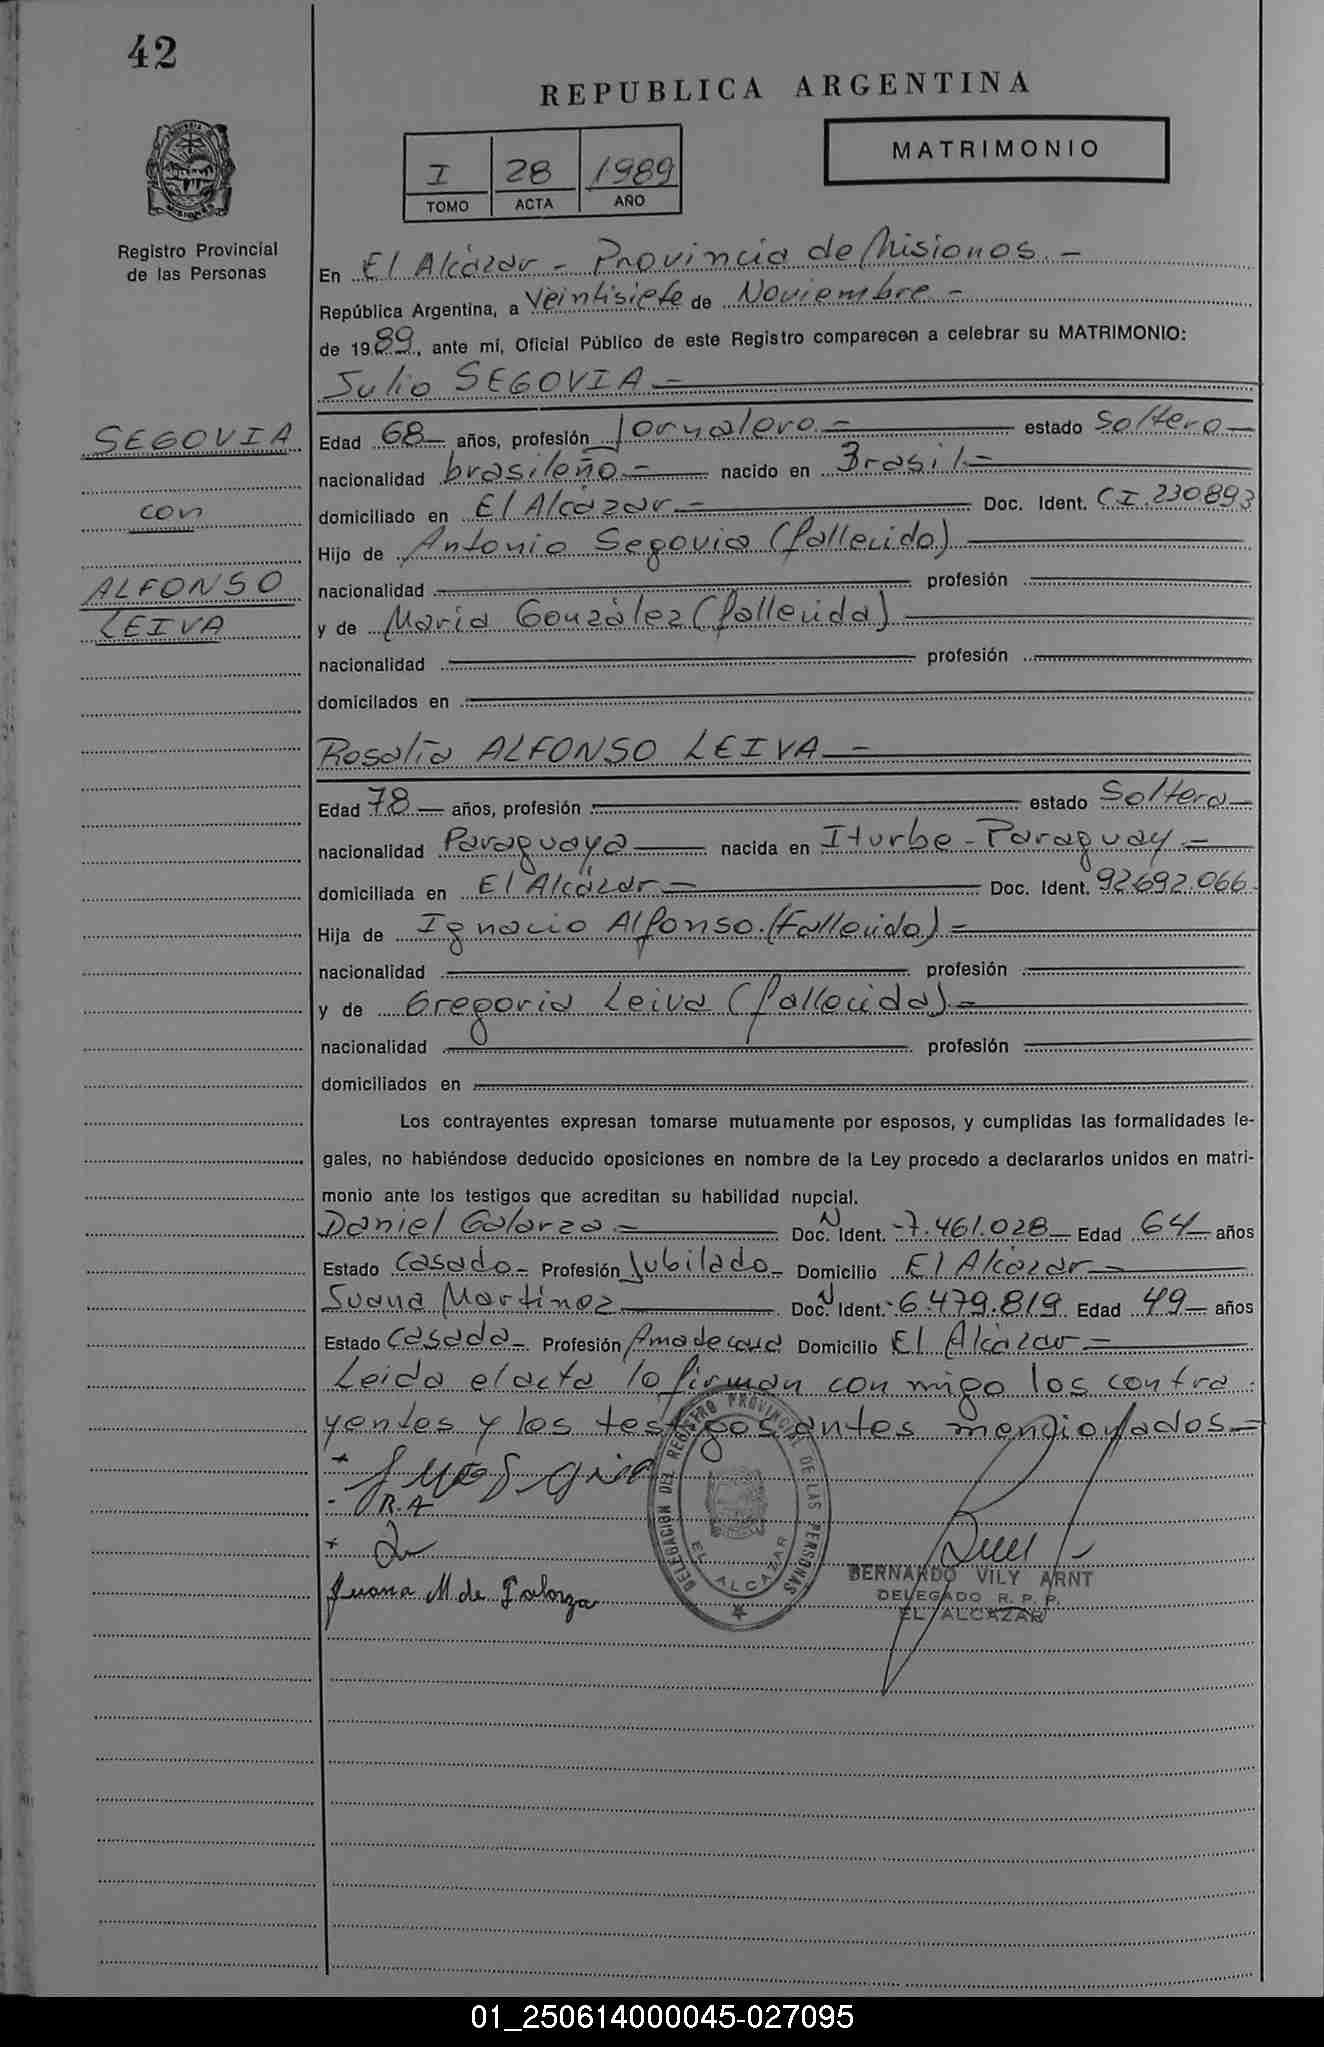 42
REPUBLICA ARGENTINA
I 28 1989
TOMO ACTA AÑO
MATRIMONIO
Registro Provincial
de las Personas
En El Alcázar - Provincia de Misiones. -
República Argentina, a Veintisiete de Noviembre -
de 1989, ante mí, Oficial Público de este Registro comparecen a celebrar su MATRIMONIO:
Julio SEGOVIA -
SEGOVIA
con
ALFONSO
LEIVA
Edad 68 años, profesión Jornalero - estado Soltero
nacionalidad brasileño - nacido en Brasil -
domiciliado en El Alcázar - Doc. Ident. C.I. 230893
Hijo de Antonio Segovia (fallecido)
nacionalidad profesión
y de María González (fallecida)
nacionalidad profesión
domiciliados en
Rosalía ALFONSO LEIVA -
Edad 78 años, profesión estado Soltera
nacionalidad Paraguaya nacida en Iturbe - Paraguay -
domiciliada en El Alcázar - Doc. Ident. 92.692.066
Hija de Ignacio Alfonso (Fallecido) -
nacionalidad profesión
y de Gregoria Leiva (fallecida) -
nacionalidad profesión
domiciliados en
Los contrayentes expresan tomarse mutuamente por esposos, y cumplidas las formalidades le-
gales, no habiéndose deducido oposiciones en nombre de la Ley procedo a declararlos unidos en matri-
monio ante los testigos que acreditan su habilidad nupcial.
Daniel Galarza - Doc. N Ident. 7.461.028 Edad 64 años
Estado Casado - Profesión Jubilado - Domicilio El Alcázar
Juana Martínez Doc. N Ident. 6.479.819 Edad 49 años
Estado Casada - Profesión Ama de casa Domicilio El Alcázar -
Leida el acta la firman con migo los contra
yentes y los testigos antes mencionados -
R.A
Juana M. de Galarza
DELEGACIÓN DEL REGISTRO PROVINCIAL DE LAS PERSONAS
EL ALCAZAR
BERNARDO VILY ARNT
DELEGADO R. P. P.
EL ALCAZAR
01_250614000045-027095